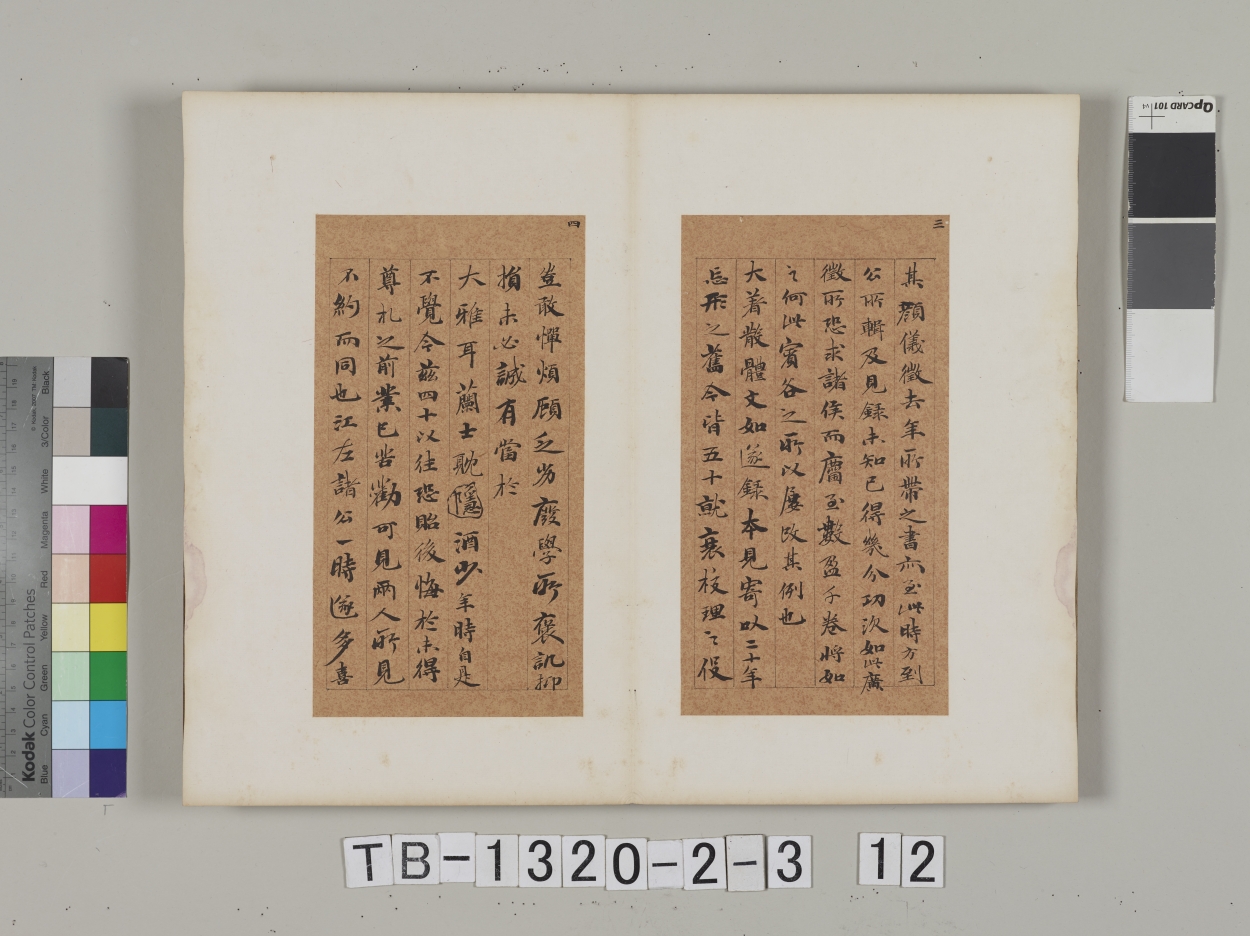 三
其顏儀徵去年所帶之書亦至此時方到
公所輯及見錄未知已得幾分功次如此廣
徵所恐求諸侯而麕至數盈千卷將如
之何此賓谷之所以屢改其例也
大著散體文如遂錄本見寄以二十年
忘形之舊今皆五十就衰校理之役
四
豈敢憚煩顧乏劣廢學所褒譏抑
損未必誠有當於
大雅耳蘭士耽隱酒少年時自是
不覺今茲四十以往恐貽後悔於未得
尊札之前業已苦勸可見兩人所見
不約而同也江左諸公一時遂多喜
QPCARD 101
Kodak Color Control Patches
Blue
Cyan
Green
Yellow
Red
Magenta
White
3/Color
Black
TB-1320-2-3 12